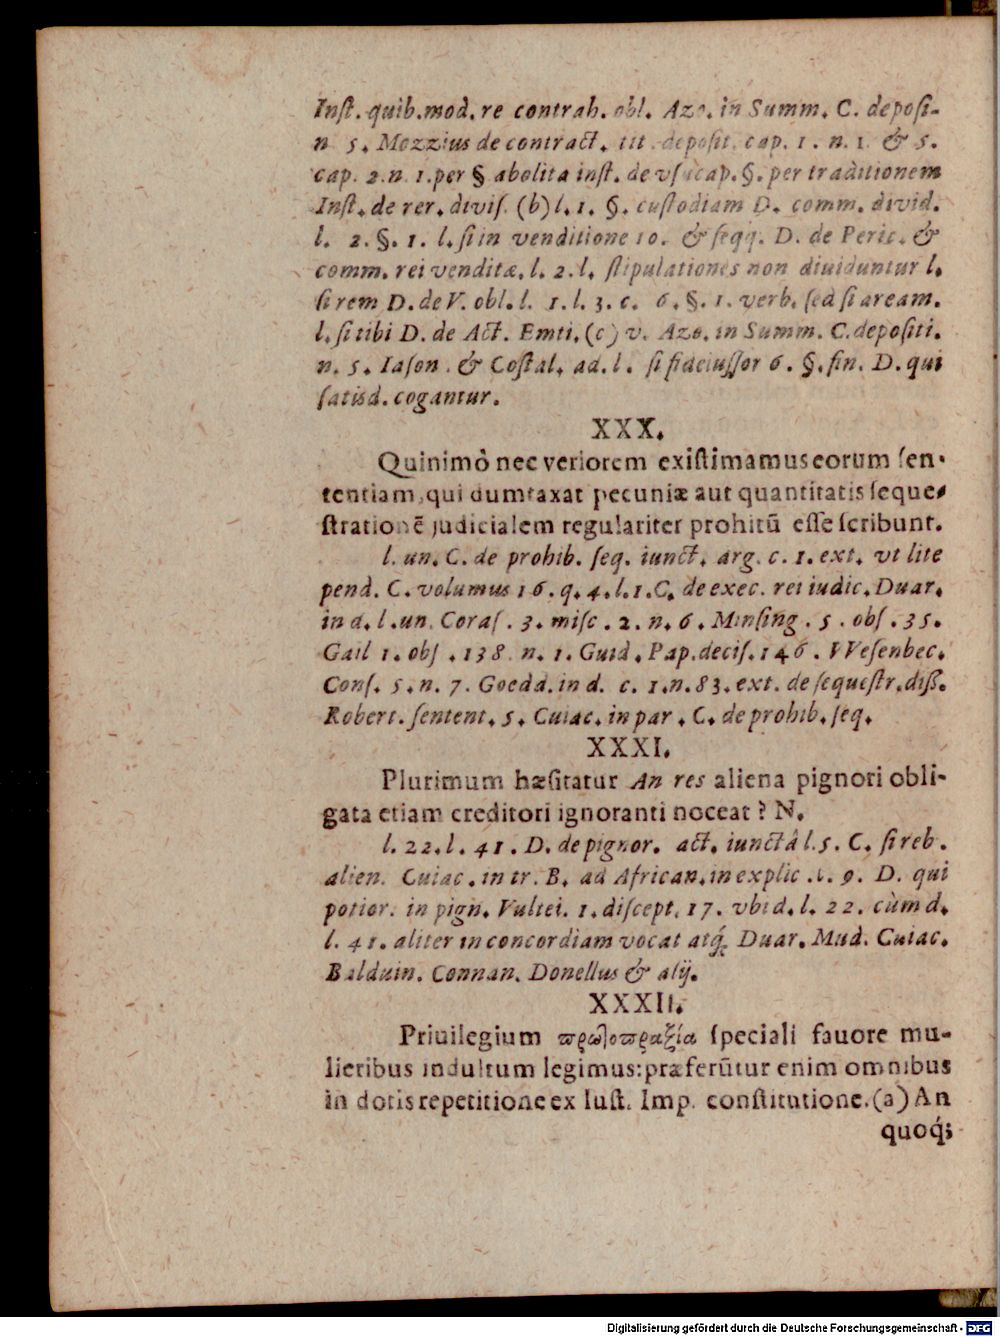 Inſt. quib. mod. re contrah. obl. Azo. in Summ. C. depoſi-
n 5. Mozzius de contract. tit. depoſit. cap. 1. n. 1. & 5.
cap. 2. n. 1. per § abolita inſt. de vſucap. §. per traditionem
Inſt. de rer. diviſ. (b) l. 1. §. cuſtodiam D. comm. divid.
l. 2. §. 1. l. ſi in venditione 10. & ſeqq. D. de Peric. &
comm. rei venditæ. l. 2. l. ſtipulationes non diuiduntur l.
ſi rem D. de V. obl. l. 1. l. 3. c. 6. §. 1. verb. ſed ſi aream.
l. ſi tibi D. de Act. Emti. (c) v. Azo. in Summ. C. depoſiti.
n. 5. Iaſon. & Coſtal. ad. l. ſi fideiuſſor 6. §. fin. D. qui
ſatisd. cogantur.
XXX.
Quinimò nec veriorem exiſtimamus eorum ſen-
tentiam, qui dumtaxat pecuniæ aut quantitatis ſeque-
ſtrationē judicialem regulariter prohitū eſſe ſcribunt.
l. un. C. de prohib. ſeq. iunct. arg. c. 1. ext. vt lite
pend. C. volumus 16. q. 4. l. 1. C. de exec. rei iudic. Duar.
in d. l. un. Coraſ. 3. miſc. 2. n. 6. Minſing. 5. obſ. 35.
Gail 1. obſ. 138. n. 1. Guid. Pap. deciſ. 146. VVeſenbec.
Conſ. 5. n. 7. Goedd. in d. c. 1. n. 83. ext. de ſequeſtr. diß.
Robert. ſentent. 5. Cuiac. in par. C. de prohib. ſeq.
XXXI.
Plurimum hæſitatur An res aliena pignori obli-
gata etiam creditori ignoranti noceat? N.
l. 22. l. 41. D. de pignor. act. iunctâ l. 5. C. ſi reb.
alien. Cuiac. in tr. B. ad African. in explic. l. 9. D. qui
potior. in pign. Vultei. 1. diſcept. 17. vbi d. l. 22. cùm d.
l. 41. aliter in concordiam vocat atq́; Duar. Mud. Cuiac.
Balduin. Connan. Donellus & alij.
XXXII.
Priuilegium πρωτοπραξία ſpeciali fauore mu-
lieribus indultum legimus: præferūtur enim omnibus
in dotis repetitione ex Iuſt. Imp. conſtitutione. (a) An
quoq́;
Digitalisierung gefördert durch die Deutsche Forschungsgemeinschaft - DFG